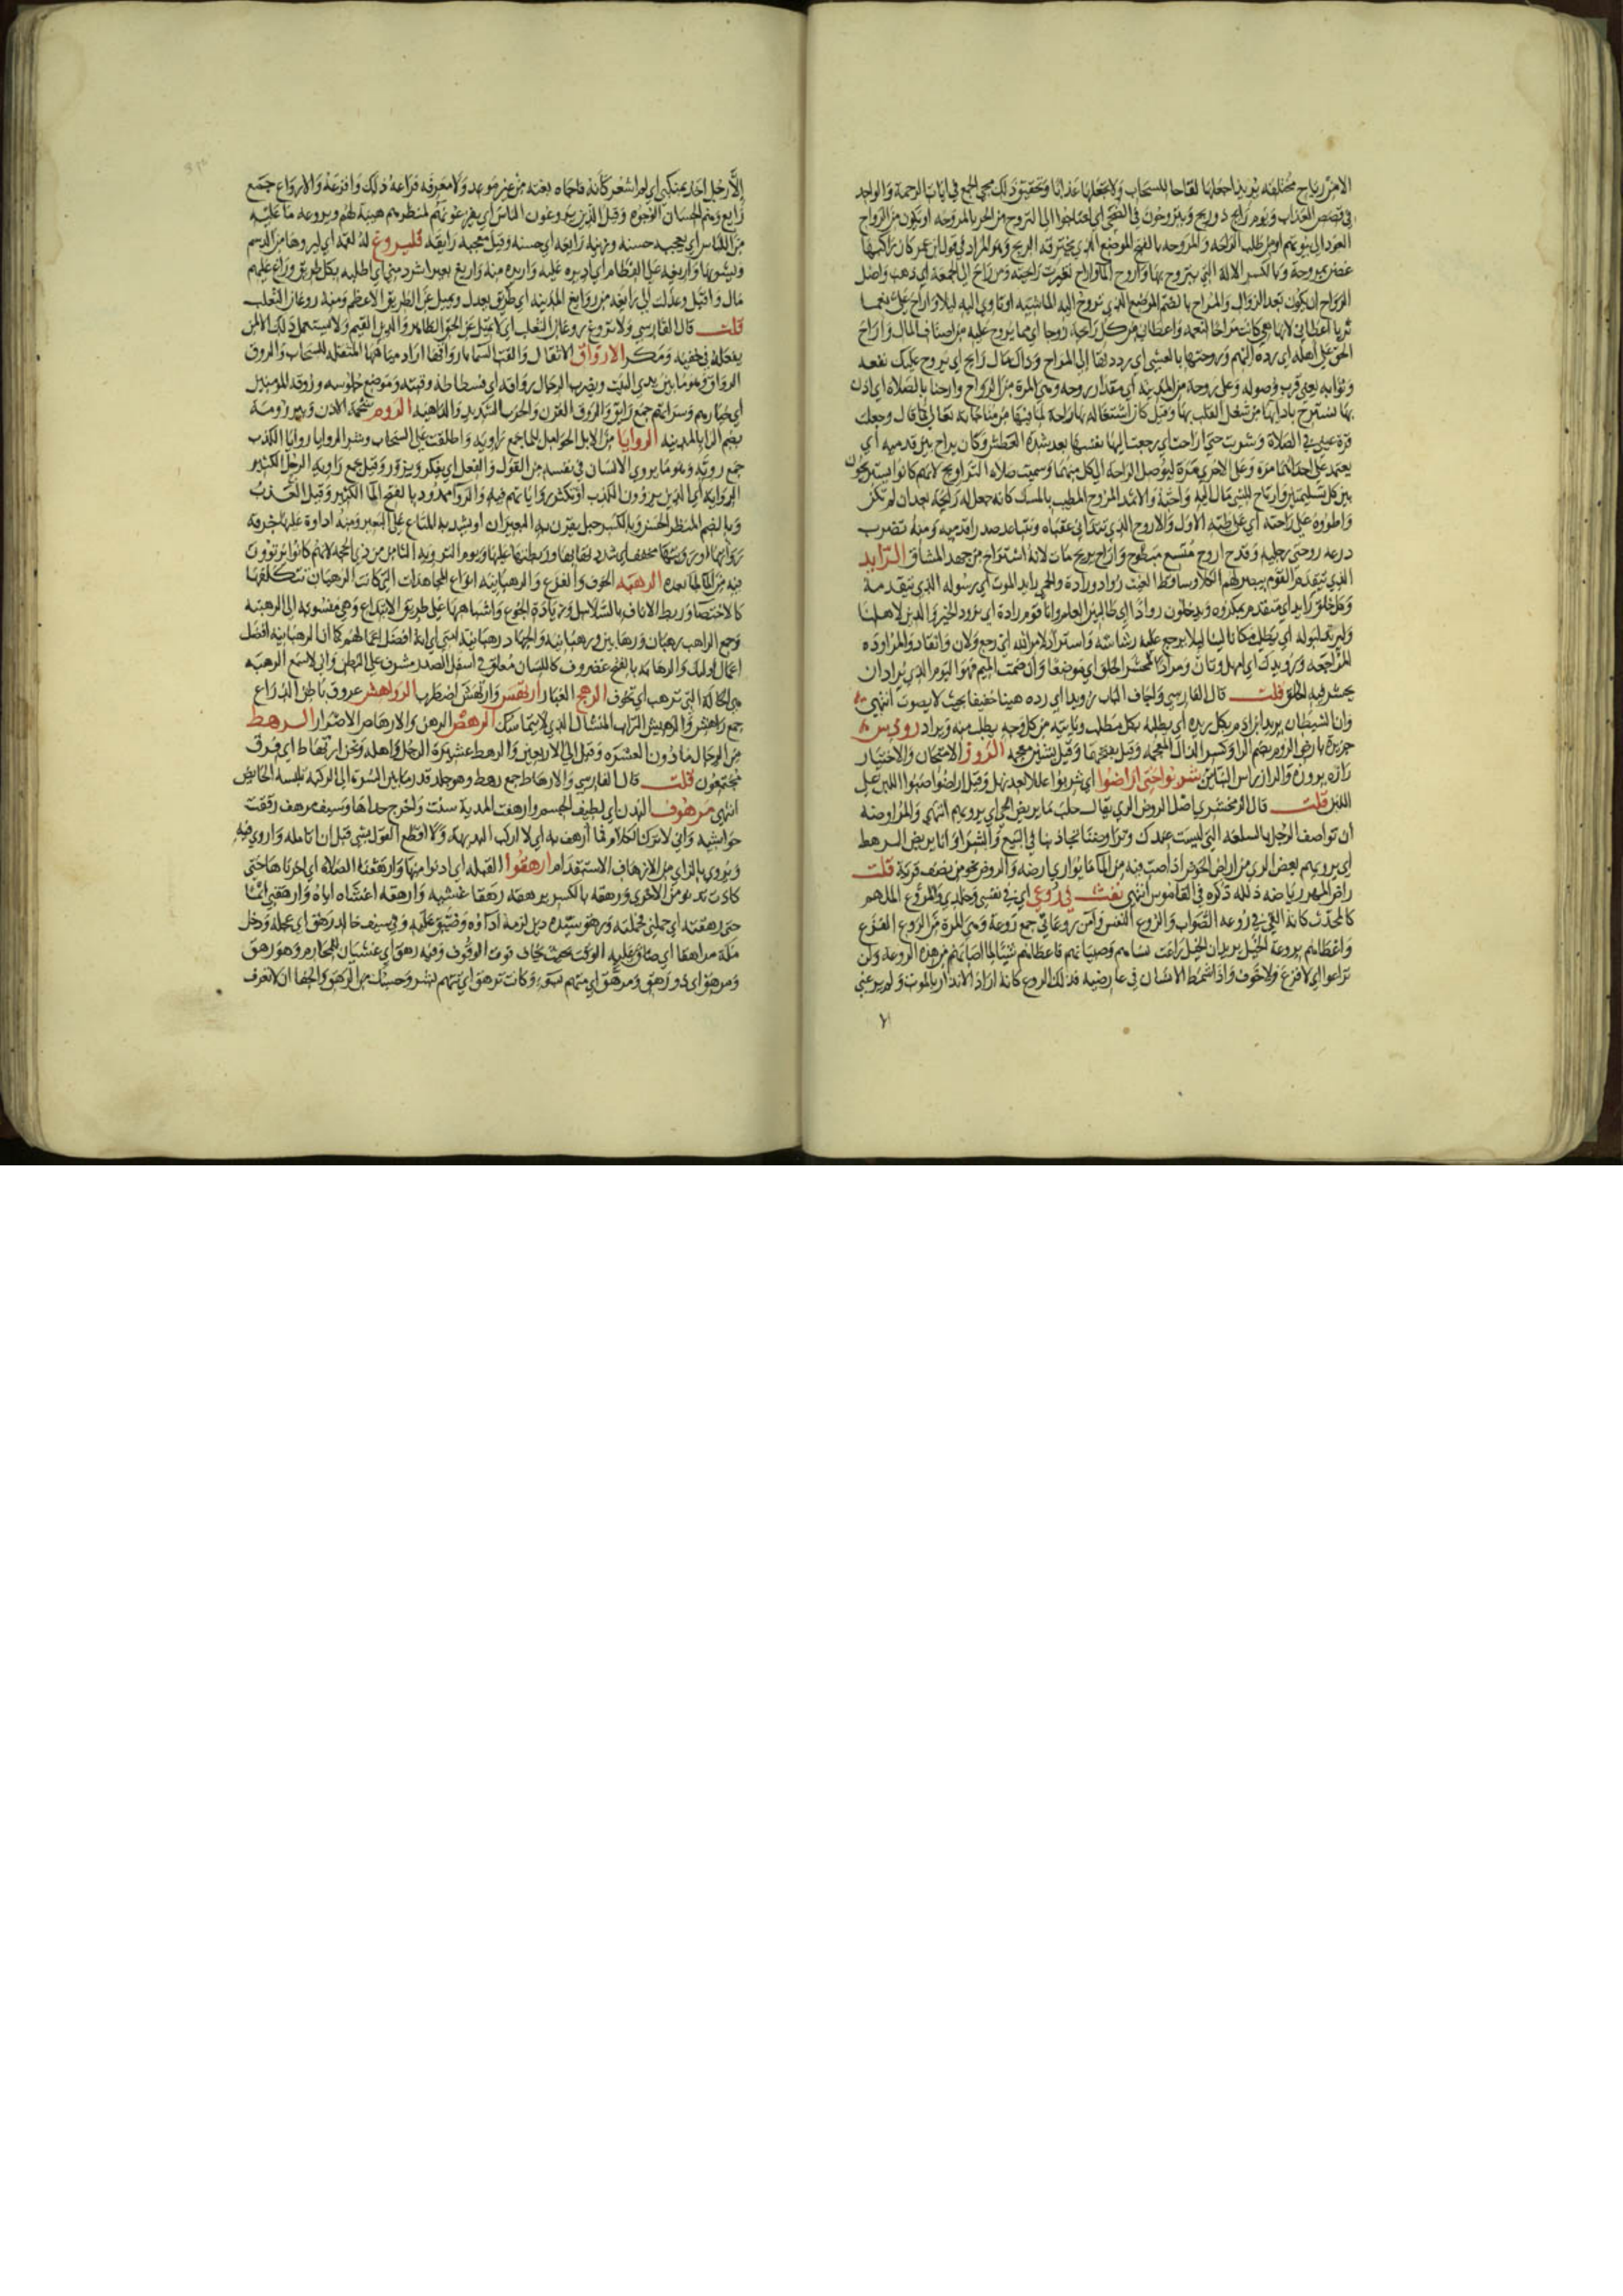 الا من رياح مختلفه يريد اجعلها لقاحا للسحاب ولا تجعلها عذابا وتحقيق ذلك مجي الجمع في ايات الرحمة والواحد
في قصص العذاب ويوم رايح ذو ريح ويتروحون في الضحى اي احتاجوا الى التروح من الحر بالمروحه او يكون من الرواح
العود الى بيوتهم او من طلب الراحه والمروحه بالفتح الموضع الذي تخترقه الريح وهو المراد في قول ابن عمر كان راكبها
غصن بمروحة وبالكسر الالة التي يتروح بها واروح الما واراح تغيرت رايحته ومن راح الى الجمعة اي ذهب واصل
الرواح ان يكون بعد الزوال والمراح بالضم الموضع الذي تروح اليه الماشيه او تاوي اليه ليلا واراح علي نعما
ثريا اعطاني لانها هي كانت مراحا لنعمه واعطاني من كل رايحة زوجا اي مما يروح عليه من اصناف المال واراح
الحق على اهله اي رده اليهم وروحتها بالعشي اي رددتها الى المراح وذاك مال رايح اي يروح عليك نفعه
وثوابه يعني قرب وصوله وعلى روحة من المدينة اي مقدار روحه وهي المرة من الرواح وارحنا بالصلاة اي اذن
بها نسترح بادائها من شغل القلب بها وقيل كان اشتغاله بها راحة له لما فيها من مناجاته تعالى لذا قال وجعلت
قرة عيني في الصلاة وشربت حتى اراحت اي رجعت اليها نفسها بعد شدة العطش وكان يراوح بين قدميه اي
يعتمد على احدهما مرة وعلى الاخرى مرة ليوصل الراحة الى كل منهما وسميت صلاة التراويح لانهم كانوا يستريحون
بين كل تسليمتين وارتاح للشي مال اليه واحبه والاثمد المروح المطيب بالمسك كانه جعل له رايحة بعد ان لم تكن
واطووه على راحته اي على طيه الاول والاروح الذي تتدانى عقباه ويتباعد صدرا قدميه ومنه تضرب
درعه روحتي رجليه وقدح اروح متسع مبطوح واراح يريح مات لانه استراح من جهد المشاق الرايد
الذي يتقدم القوم يبصر لهم الكلا ومساقط الغيث رواد ورادة والحمى رايد الموت اي رسوله الذي يتقدمه
المراجعه ورويدك اي امهل وتان ومراد المحشر الخلق اي موضعا وان ضمت الميم فهو اليوم الذي يراد ان
يحشر فيه الخلق قلت قال الفارسي واجاف الباب رويدا اي رده هينا خفيفا بحيث لا يصوت انتهى
وان الشيطان يريد ابن ادم بكل ريدة اي يطلبه بكل مطلب وياتيه من كل وجه يطلب منه ويراد رودس
جزيرة بارض الروم بضم الرا وكسر الذال المعجمه وقيل بفتحها وقيل بشين معجمه الروز الامتحان والاختبار
رازه يروزه والراز راس البنائين شربوا حتى اراضوا اي شربوا عللا بعد نهل وقيل اراضوا صبوا اللبن على
اللبن قلت قال الزمخشري اصل الروض الري يقال حلب ما يريض الحي اي يرويهم انتهى والمراوضه
ان تواصف الرجل بالسلعه التي ليست عندك وتراوضنا تجاذبنا في البيع والشرا وانا يريض الرهط
اي يرويهم بعض الري من اراض الحوض اذا صب فيه من الما ما يواري ارضه والروض نحو من نصف قربة قلت
راض المهر رياضه ذلله ذكره في القاموس انتهى نفث في روعي اي في نفسي وخلدي والمروع الملهم
كالمحدث كانه القي في روعه الصواب والروع النفس وامن روعاتي جمع روعة وهي المرة من الروع الفزع
واعطاهم بروعة الخيل يريد ان الخيل راعت نساءهم وصبيانهم فاعطاهم شيئا لما اصابهم من هذه الروعة ولن
تراعوا اي لا فزع ولا خوف واذا شمط الانسان في عارضيه فذلك الروع كانه اراد الانذار بالموت ولم يرعني
الا رجل اخذ بمنكبي اي لم اشعر كانه فاجاه بغتة من غير موعد ولا معرفه فراعه ذلك وافزعه والارواع جمع
رايع وهم الحسان الوجوه وقيل الذين يروعون الناس اي يفزعونهم لمنظرهم هيبة لهم ويروعه ما عليه
من اللباس اي يعجبه حسنه وزينة رايعة اي حسنه وقيل معجبه رايقه فليروغ له لقمه اي ليروها من الدسم
مال واقبل وعدلت الى رايغه من روايغ المدينه اي طريق يعدل ويميل عن الطريق الاعظم ومنه روغان الثعلب
قلت قال الفارسي ولا تروغ روغان الثعلب اي لا تميل عن الحق الظاهر والدين القيم ولا يستعمل ذلك الا لمن
يفعله في خفيه ومكر الارواق الاثقال والقت السما بارواقها اراد مياهها المثقله للسحاب والروق
الرواق وهو ما بين يدي البيت ويضرب الدجال رواقه اي فسطاطه وقبته وموضع جلوسه وروقه المومنين
اي خيارهم وسراتهم جمع رايق والروق القرن والحرب الشديد والداهيه الروم شحمة الاذن وبير رومة
بضم الرا بالمدينه الروايا من الابل الحوامل للما جمع راويه واطلقت على السحاب وشر الروايا روايا الكذب
جمع روية وهو ما يروي الانسان في نفسه من القول والفعل اي يفكر ويزور وقيل جمع راوية الرجل الكثير
الرواية اي الذين يروون الكذب او تكثر رواياتهم فيه والروا ممدود بالفتح الما الكثير وقيل العذب
وبالضم المنظر الحسن وبالكسر حبل يقرن به البعيران او يشد به المتاع على البعير ومنه اداوة عليها خرقة
فيه من الما لما بعده الرهبه الخوف والفزع والرهبانيه انواع المجاهدات التي كانت الرهبان تتكلفها
كالاختصا وربط الاناق بالسلاسل وزيادة الجوع واشباهها على طريق الابتداع وهي منسوبة الى الرهبنه
وجمع الراهب رهبان ورهابين ورهبانيه والجهاد رهبانية امتي اي انه افضل اعمالهم كما ان الرهبانيه افضل
اعمال اولئك والرهابه بالفتح غضروف كاللسان معلق في اسفل الصدر مشرف على البطن واني لاسمع الرهبه
هي الحالة التي ترهب اي تخوف الرهج الغبار ارتهس وارتهش اضطرب الرواهش عروق باطن الذراع
جمع راهش والرهيش التراب المنثال الذي لا يتماسك الرهص الرهن والارهاص الاصرار الرهط
من الرجال ما دون العشرة وقيل الى الاربعين والرهط عشيرة الرجل واهله ونحن ارتهاط اي فرق
مجتمعون قلت قال الفارسي والارهاط جمع رهط وهو جلد قدر ما بين السرة الى الركبة تلبسه الحائض
انتهى مرهوف البدن اي لطيف الجسم وارهفت المدية سنت واخرج حداها وسيف مرهف رققت
حواشيه واني لاترك الكلام فما ارهف به اي لا اركب البديهة ولا اقطع القول بشي قبل ان اتامله واروي فيه
ويروى بالزاي من الازهاف الاستقدام ارهقوا القبله اي ادنوا منها وارهقنا الصلاة اي اخرناها حتى
كادت تدنو من الاخرى ورهقه بالكسر يرهقه رهقا غشيه وارهقه اغشاه اياه وارهقني اثما
حتى رهقته اي حملني فحملته ورهق سيده دين لزمه اداؤه وضيق عليه وفي سيف خالد رهق اي عجلة ودخل
مكة مراهقا اي ضاق عليه الوقت بحيث يخاف فوت الوقوف وفيه رهق اي غشيان للمحارم وهو رهق
ومرهق اي ذو رهق ومرهق اي متهم بسوء وكانت ترهق اي تتهم بشر وحسبك من الرهق والجفا ان لا تعرف